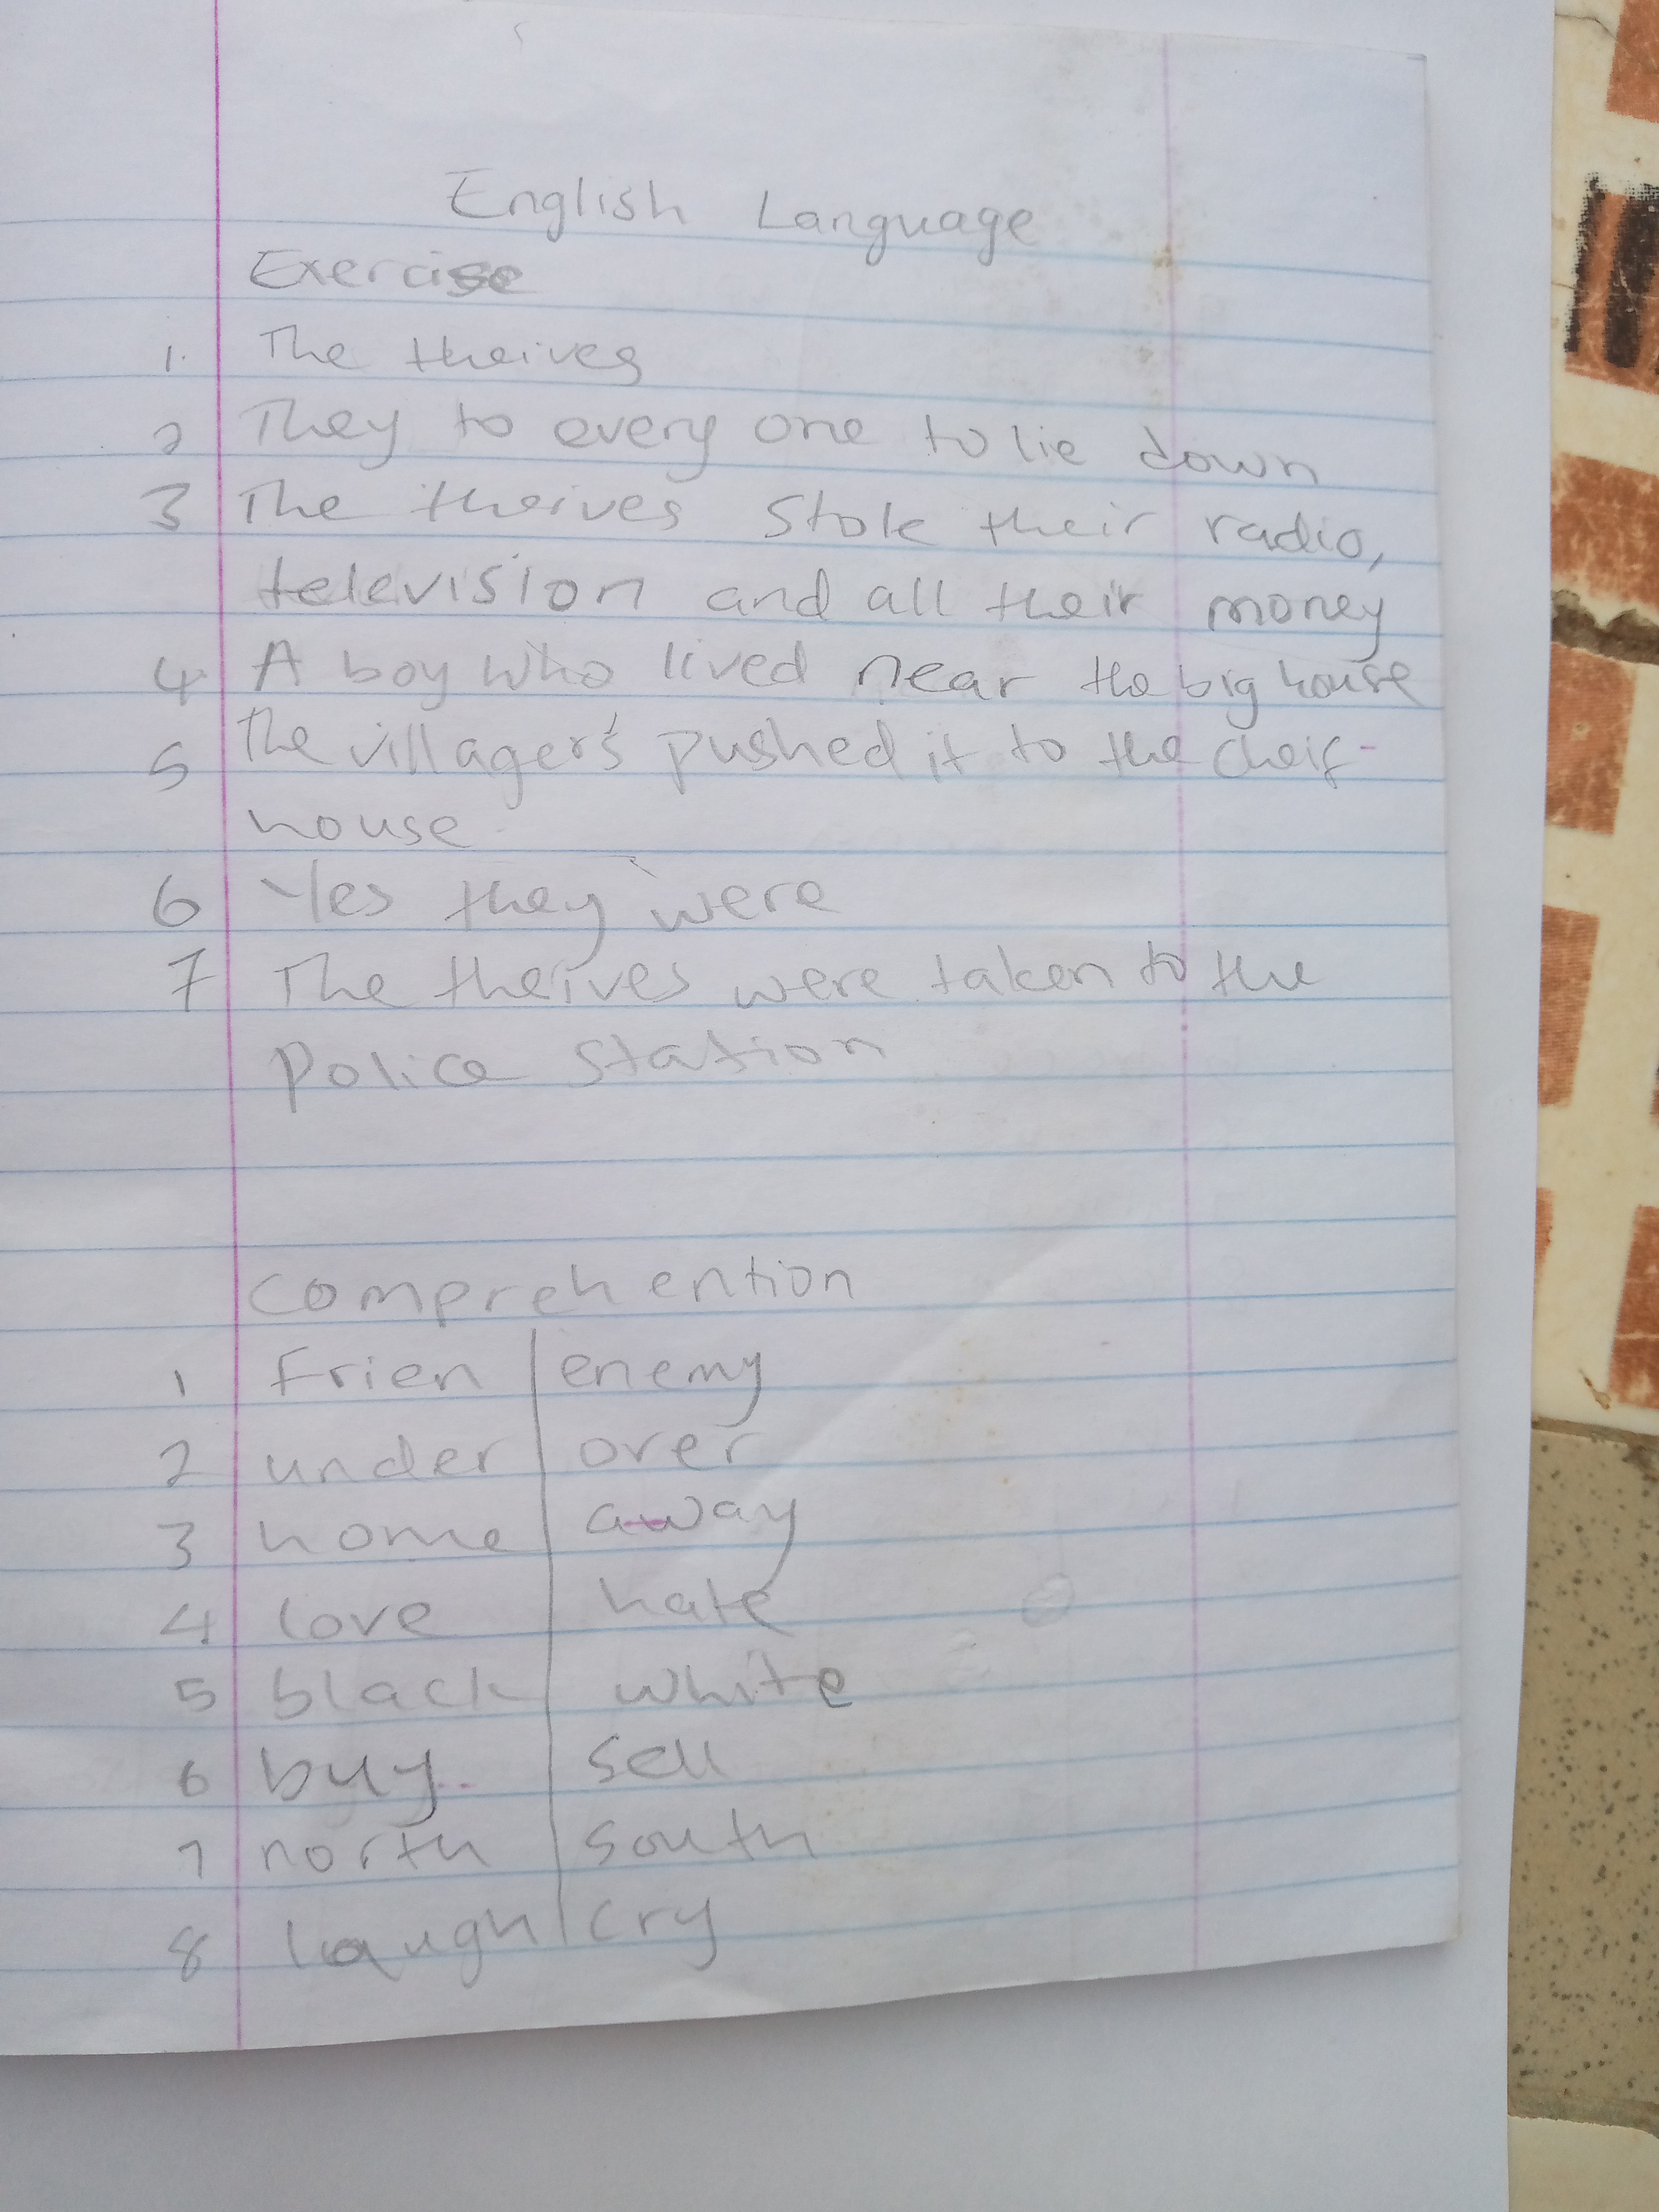 English Language
Exercise
1. The theives
2 They to every one to lie down
3 The theives Stole their radio,
television and all their money
4 A boy who lived near the big house
5 The villager's pushed it to the cheif-
house
6 Yes they were
7 The theives were taken to the
police station
comprehention
1 Frien enemy
2 under over
3 home away
4 love hate
5 black white
6 buy sell
7 north south
8 laugh cry